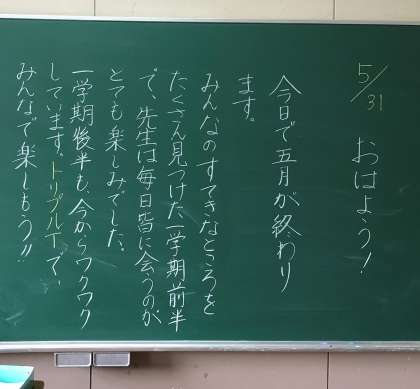 5/31 おはよう!
今日で五月が終わり
ます。
みんなのすてきなところを
たくさん見つけた一学期前半
で、先生は毎日皆に会うのが
とても楽しみでした。
一学期後半も、今からワクワク
しています。トリプルTで、
みんなで楽しもう!!